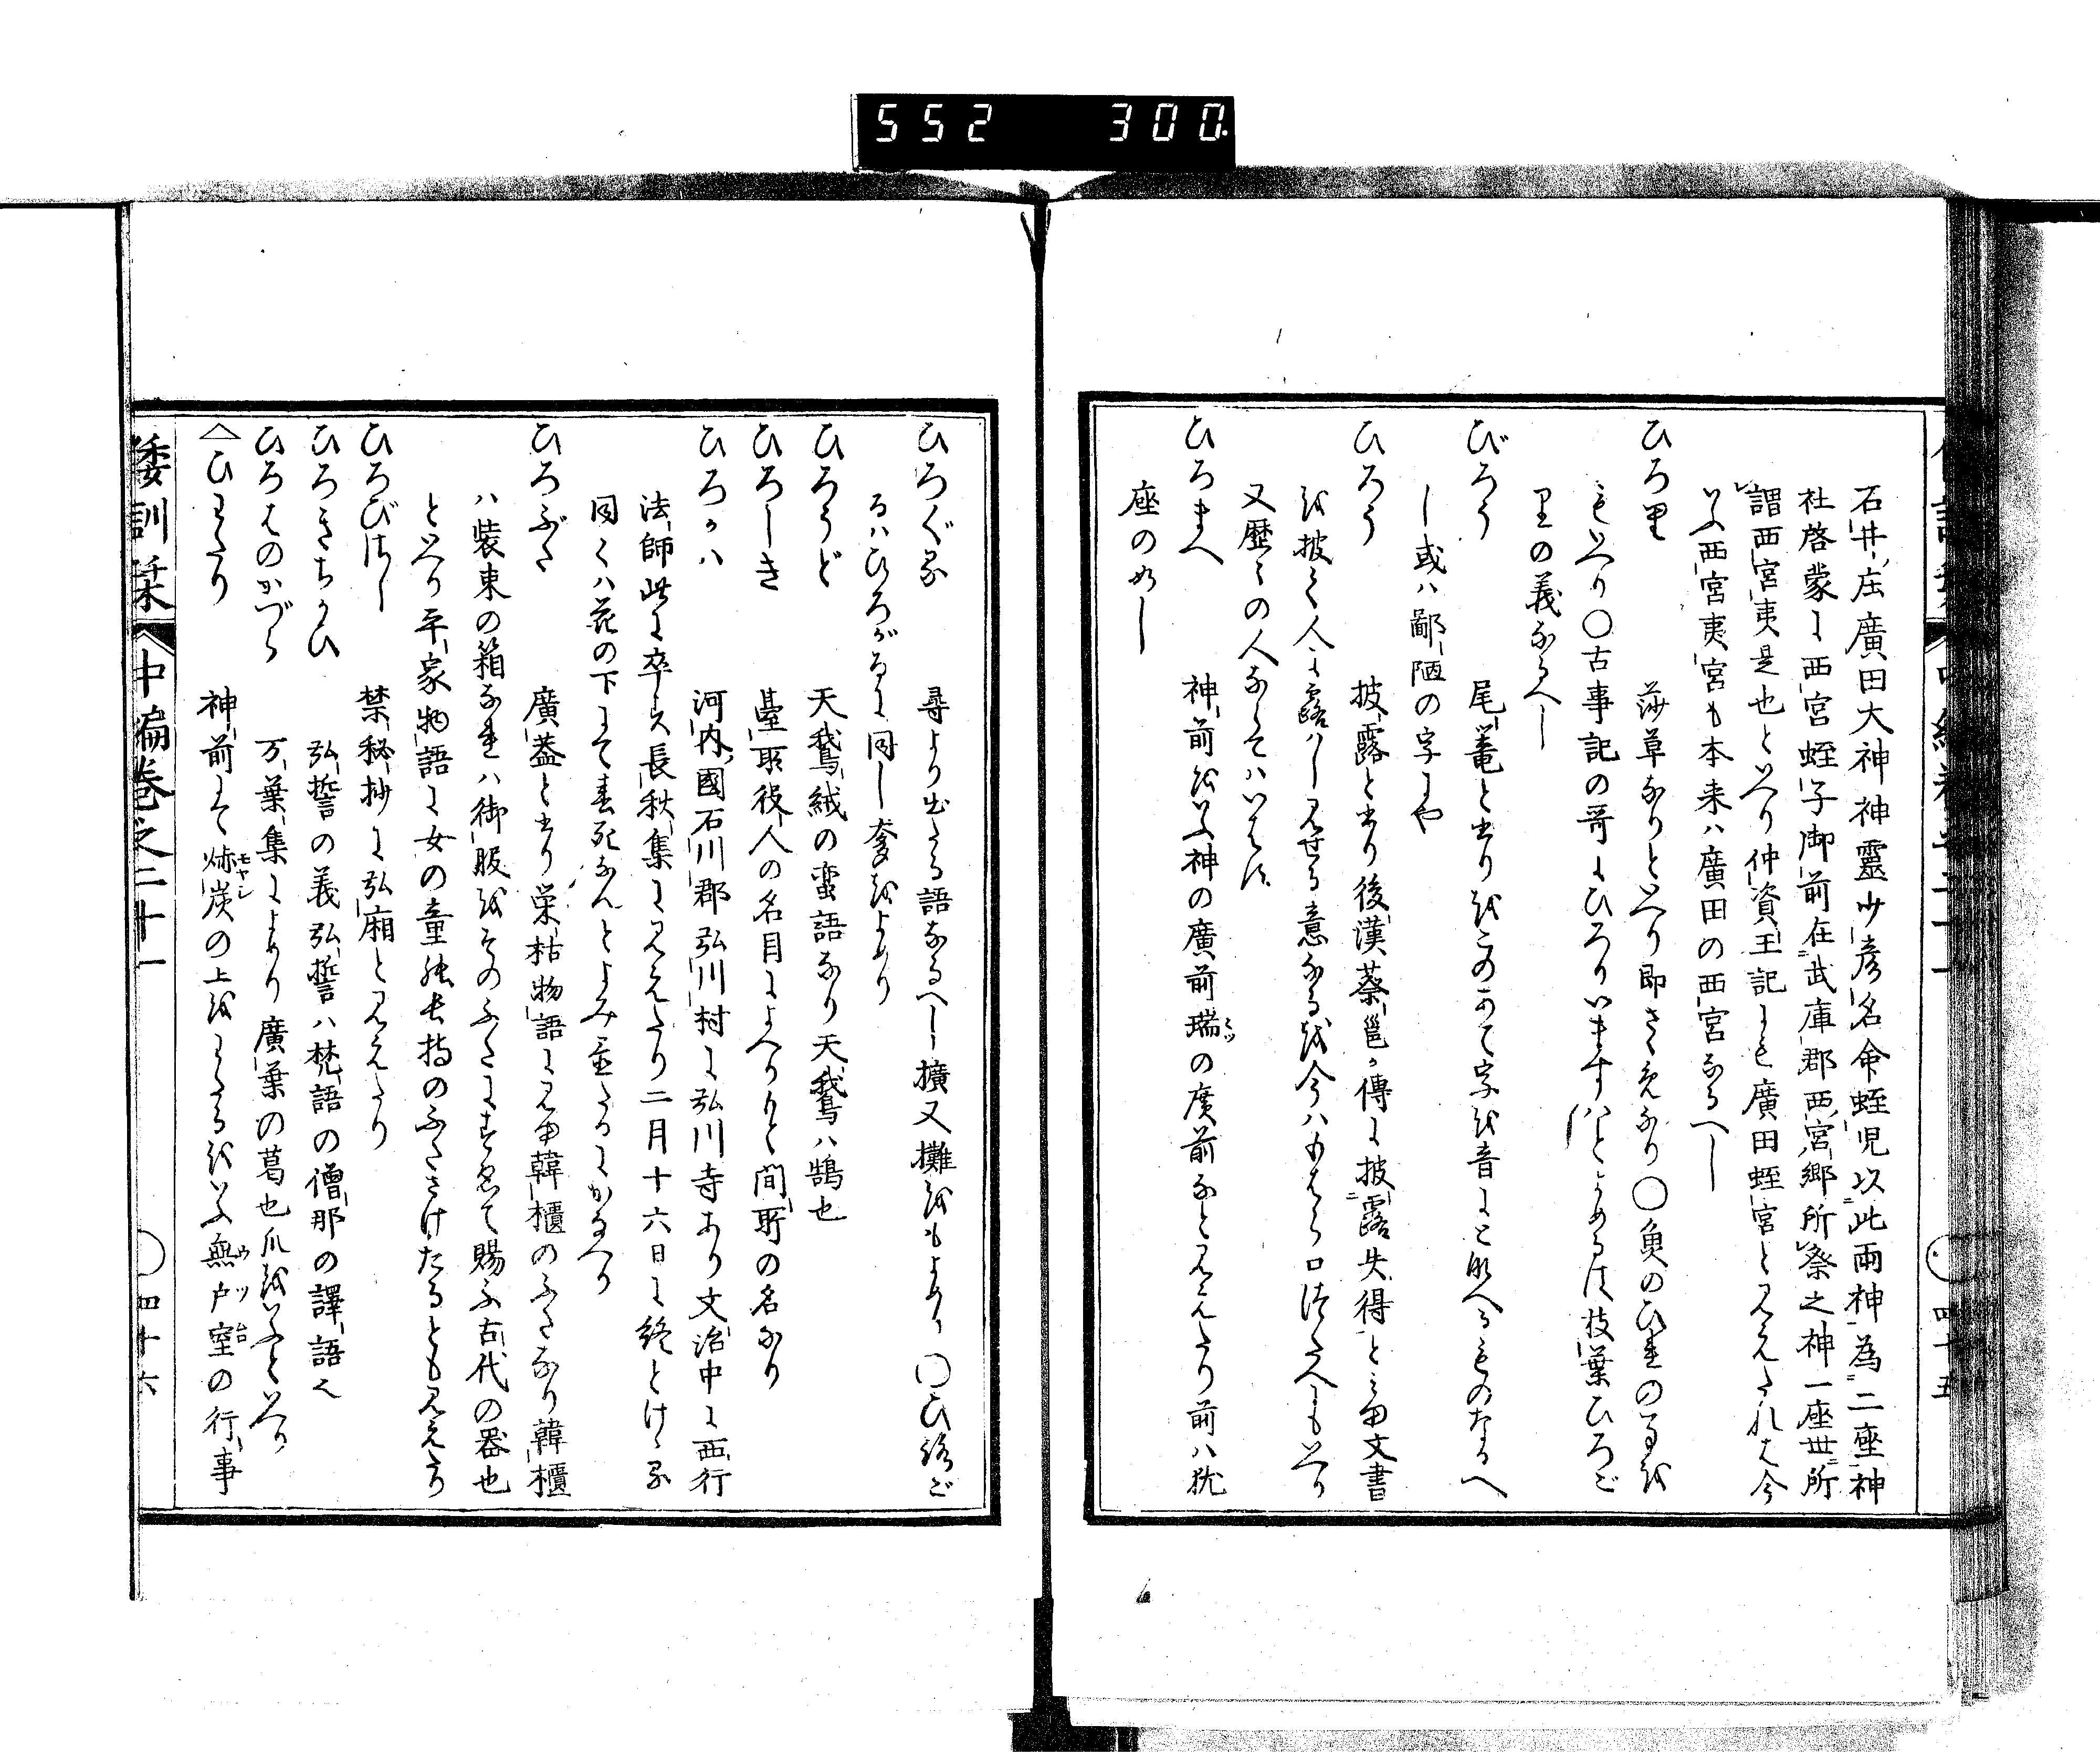 552 300.
石井ノ庄廣田大神神靈少彦名命蛭児以此兩神為二座神
社啓蒙に西宮蛭子御前在武庫郡西宮郷所祭之神一座世所
謂西宮夷是也といへり仲資王記にも廣田蛭宮と見えたれは今
いふ西宮夷宮も本来ハ廣田の西宮なるへし
ひろり 莎草なりといへり即さく免なり〇魚のひれの事を
もいへり〇古事記の哥にひろりいますハとよめるは枝葉ひろご
りの義なるへし
びろう 尾篭と書りをこのあて字を音にとなへるものなるへ
し或ハ鄙陋の字にや
ひろう 披露と書り後漢蔡邕か傳に披露失得と見ゆ文書
を披て人に露ハし見せる意なるを今ハもはら口伝へにもいへり
又歴々の人ならてハいはす
ひろまへ 神前をいふ神の廣前瑞の廣前なと見えたり前ハ猶
座の如し
四十五
ひろぐる 尋より出たる語なるへし擴又攤をもよめり〇ひろご
るハひろがるに同し奓をよめり
ひろうど 天鵞絨の蛮語なり天鵞ハ鵠也
ひろしき 臺所役人の名目によへりもと間所の名なり
ひろかハ 河内國石川郡弘川村に弘川寺あり文治中に西行
法師此に卒す長秋集に見えたり二月十六日に終とけゝる
同くハ花の下にて春死なんとよみ置たるにかなへり
ひろぶた 廣葢と書り栄枯物語に見ゆ韓櫃のふたなり韓櫃
ハ装束の箱なれハ御服をそのふたにすゑて賜ふ古代の器也
といへり平家物語に女の童破長持のふたさけたるとも見えたり
ひろびさし 禁秘抄に弘廂と見えたり
ひろきちかひ 弘誓の義弘誓ハ梵語の僧那の譯語也
ひろはのかづら 万葉集によめり廣葉の葛也爪をいふといへり
△ひわたり 神前にて焃炭の上をわたるをいふ無戸室の行事
倭訓栞 中編巻之二十一 四十六